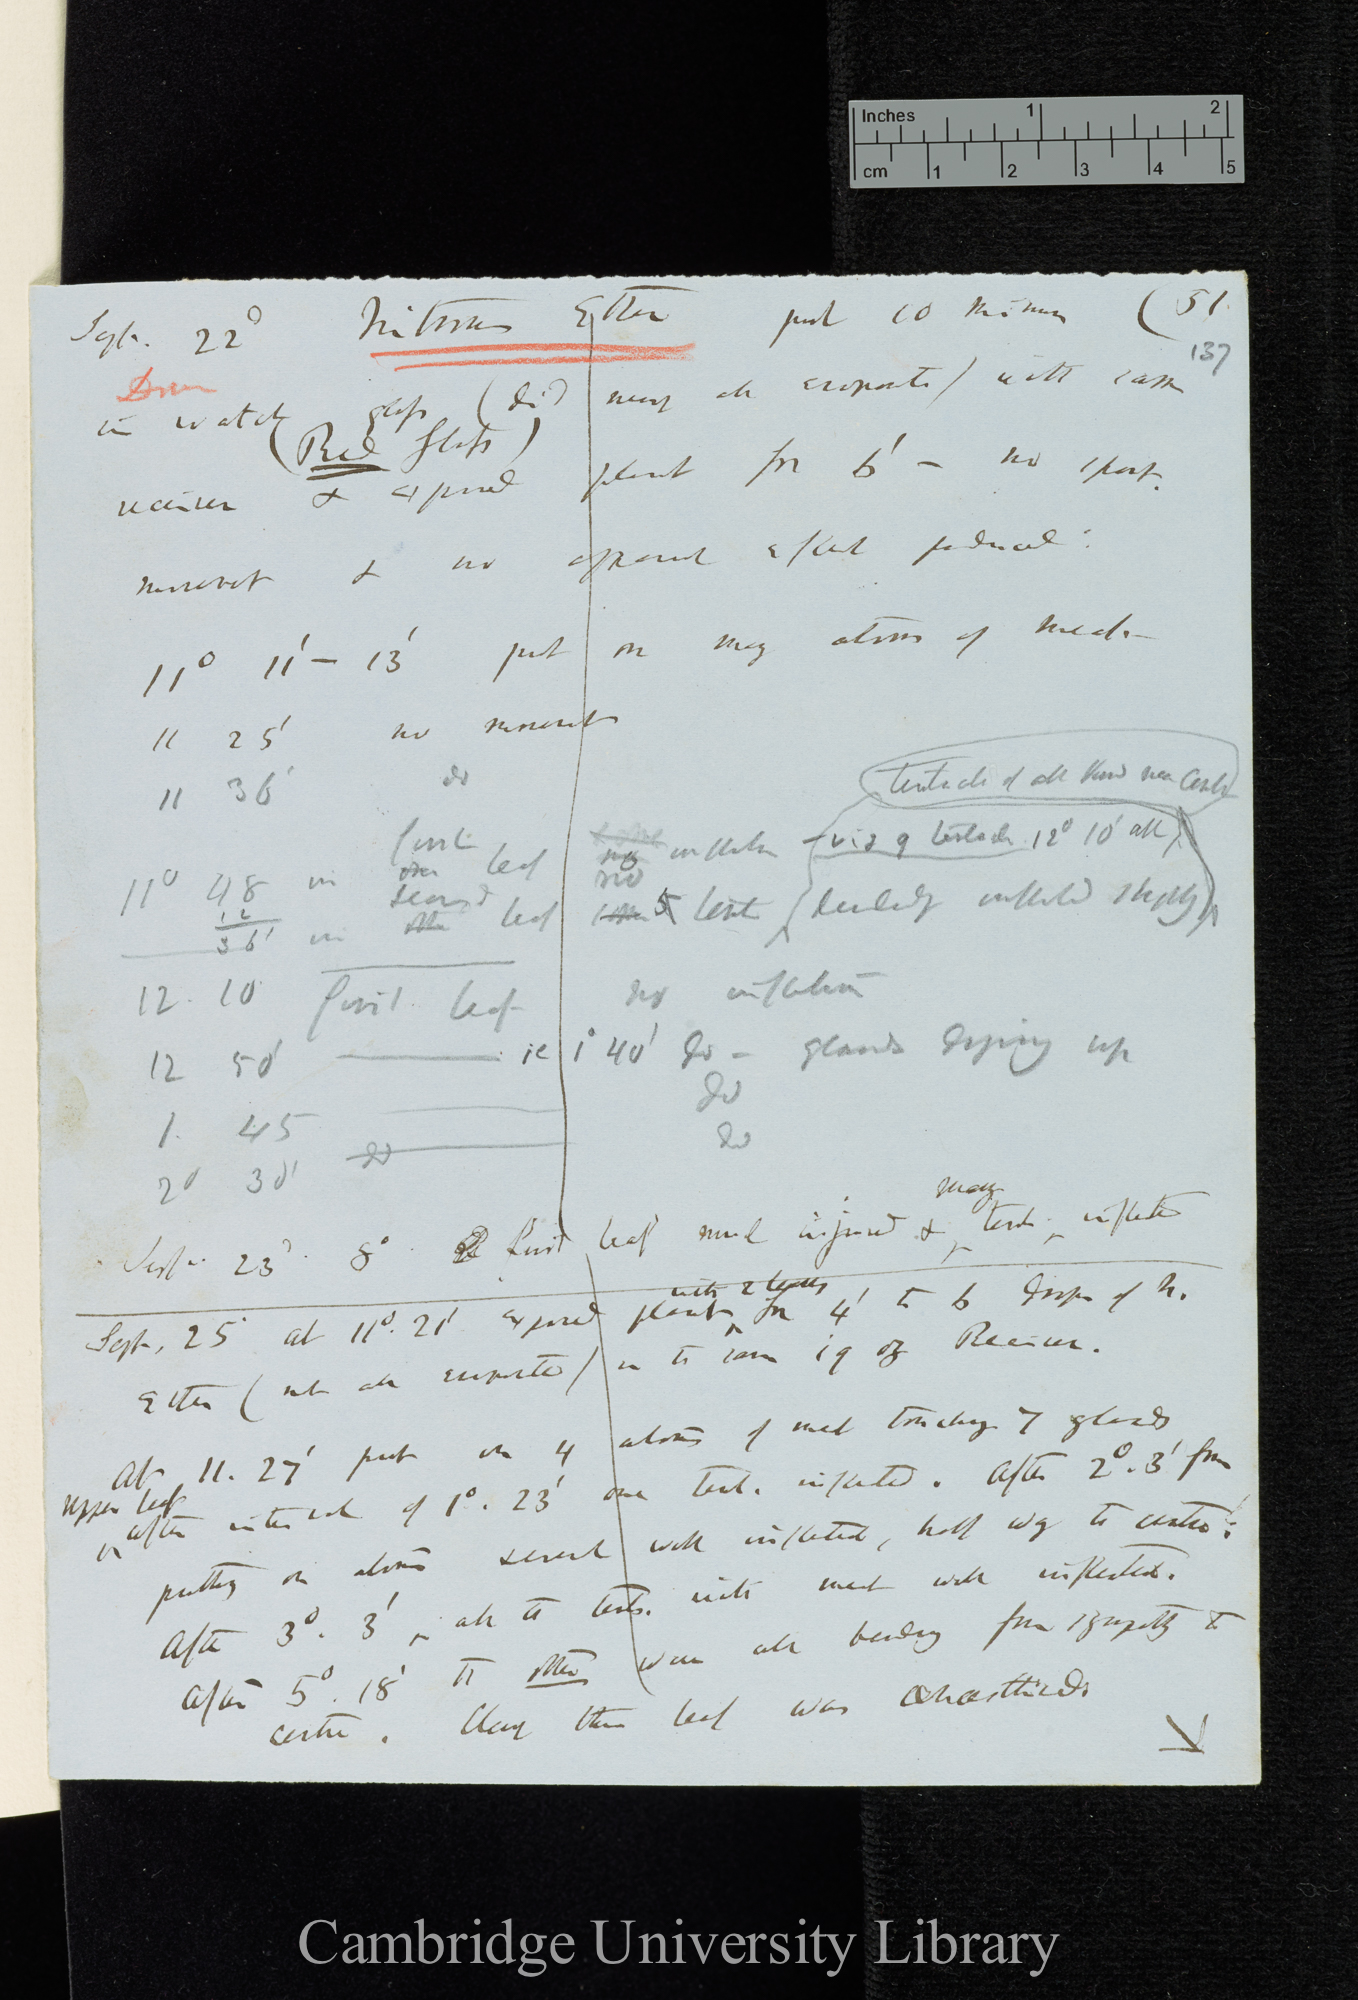 Inches 1 2
cm 1 2 3 4 5
Sept. 22d Nitrous Ether put 10 minims (51
137
Dros
in watch glass (did not all evaporate) with same
(Red Glass)
receiver & exposed plant for 6' — no spont.
movement & no apparent effect produced.
11° 11' — 13' put on may atoms of meat —
11 25' no movement
11 36' do
tentacles of all kind near centre
first
11° 48 in one leaf no inflection — viz 9 tentacle 12° 10' all
12
36' in second other leaf 5 tent decidedly inflected slightly
12. 10 first leaf no inflection
12 50' ie 1° 40' do — glands drying up
1. 45 do
2° 30' do do
many
Sept. 23d. 8° first leaf much injured & tent. inflected
with 2 leaves
Sept. 25 at 11°. 21' exposed plant for 4' to 6 drops of N.
Ether (not all evaporated) in the same 19 oz Receiver.
At 11. 27' put on 4 atoms of meat touching 7 glands
upper leaf
after interval of 1°. 23' one tent. inflected. After 2°. 3' from
putting on atoms several well inflected, half way to centre:
After 3°. 3', all the tents. with meat well inflected.
After 5°. 18' the other were all bending from sympathy to
centre. Clearly this leaf was